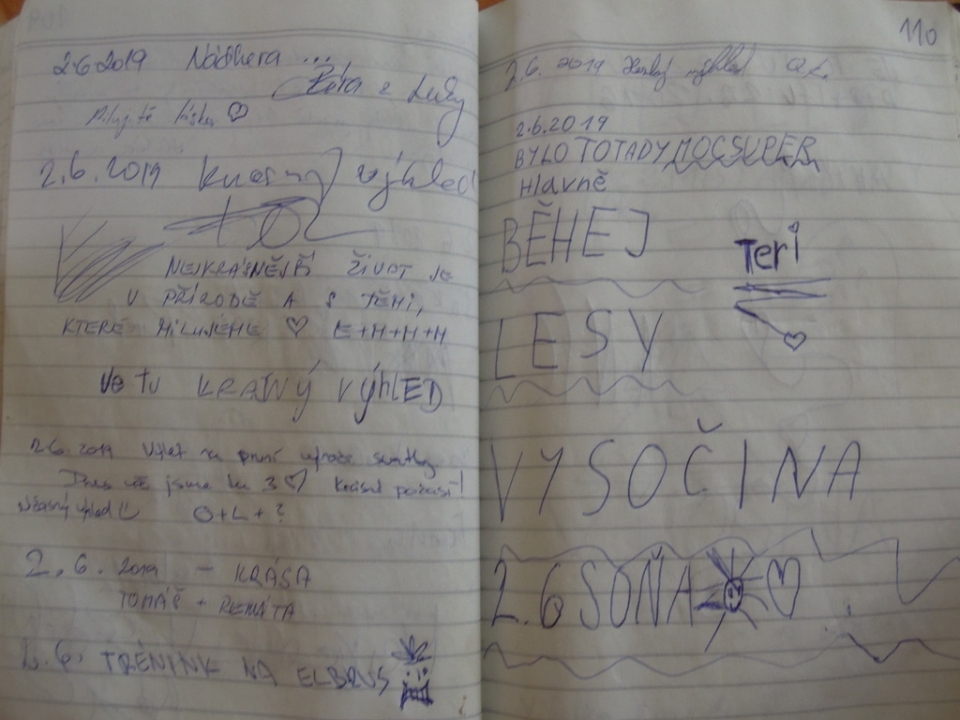 2.6.2019 Nádhera ...
Péra z Luky
Miluji tě lásko ♡
2.6.2019 krásný výhled
NEJKRÁSNĚJŠÍ ŽIVOT JE
V PŘÍRODĚ A S TĚMI,
KTERÉ MILUJEME ♡ E+H+H+H
Je tu KRASNÝ VÝHLED
2.6.2019 Výlet na první výročí svatby
Dnes už jsme tu 3 ♡ Krásné počasí!
Úžasný výhled!! O+L+?
2.6.2019 - KRÁSA
TOMÁŠ + RENÁTA
2.6. TRÉNINK NA ELBRUS
110
2.6.2019 Hezký výhled
2.6.2019
BYLO TOTADY MOC SUPER
Hlavně
BĚHEJ
Teri
LESY
VYSOČINA
2.6 SOŇA ♡